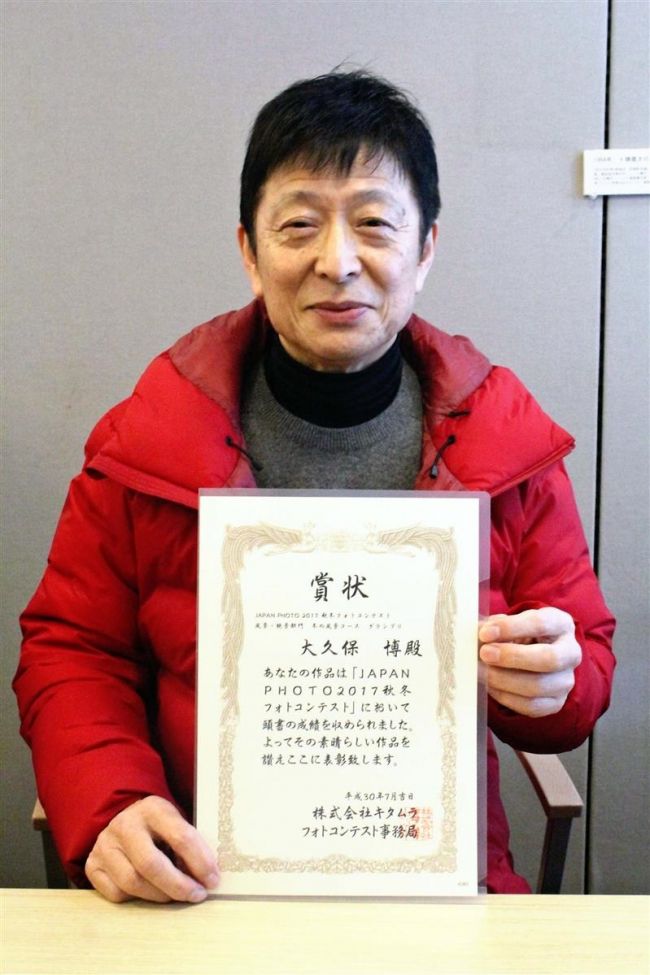 賞状
JAPAN PHOTO 2017 秋冬フォトコンテスト
風景・絶景部門 冬の風景コース グランプリ
大久保 博殿
あなたの作品は「JAPAN
PHOTO2017秋冬
フォトコンテスト」において
頭書の成績を収められました。
よってその素晴らしい作品を
讃えここに表彰致します。
平成30年7月吉日
株式会社キタムラ
フォトコンテスト事務局